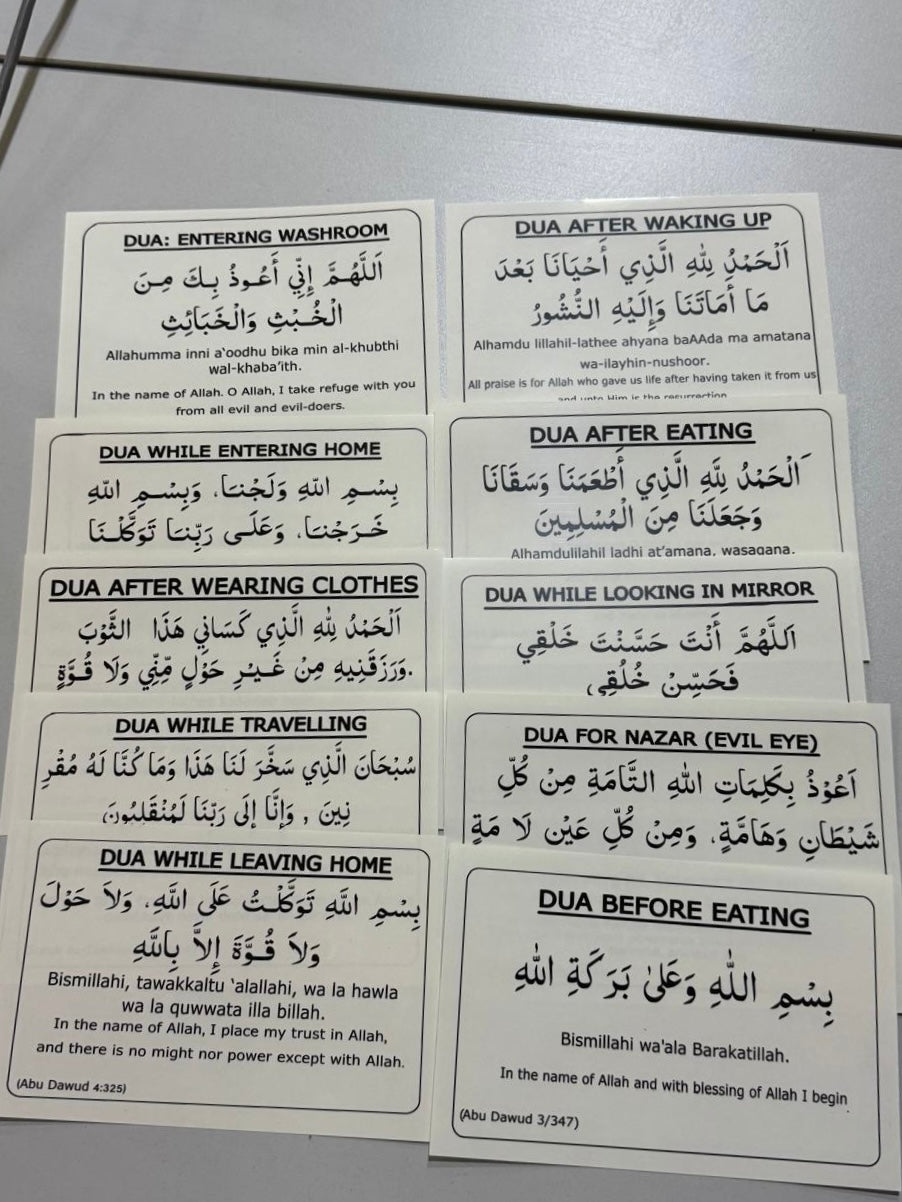 DUA: ENTERING WASHROOM
اَللَّهُمَّ إِنِّي أَعُوذُ بِكَ مِنَ
الْخُبْثِ وَالْخَبَائِثِ
Allahumma inni a'oodhu bika min al-khubthi
wal-khaba'ith.
In the name of Allah. O Allah, I take refuge with you
from all evil and evil-doers.
DUA WHILE ENTERING HOME
بِسْمِ اللهِ وَلَجْنَا، وَبِسْمِ اللهِ
خَرَجْنَا، وَعَلَى رَبِّنَا تَوَكَّلْنَا
DUA AFTER WEARING CLOTHES
اَلْحَمْدُ لِلَّهِ الَّذِي كَسَانِي هَذَا الثَّوْبَ
وَرَزَقَنِيهِ مِنْ غَيْرِ حَوْلٍ مِّنِّي وَلَا قُوَّةٍ.
DUA WHILE TRAVELLING
سُبْحَانَ الَّذِي سَخَّرَ لَنَا هَذَا وَمَا كُنَّا لَهُ مُقْرِ
نِينَ , وَإِنَّا إِلَى رَبِّنَا لَمُنْقَلِبُونَ
DUA WHILE LEAVING HOME
بِسْمِ اللَّهِ تَوَكَّلْتُ عَلَى اللَّهِ، وَلاَ حَوْلَ
وَلاَ قُوَّةَ إِلاَّ بِاللَّهِ
Bismillahi, tawakkaltu 'alallahi, wa la hawla
wa la quwwata illa billah.
In the name of Allah, I place my trust in Allah,
and there is no might nor power except with Allah.
(Abu Dawud 4:325)
DUA AFTER WAKING UP
اَلْحَمْدُ لِلَّهِ الَّذِي أَحْيَانَا بَعْدَ
مَا أَمَاتَنَا وَإِلَيْهِ النُّشُورُ
Alhamdu lillahil-lathee ahyana baAAda ma amatana
wa-ilayhin-nushoor.
All praise is for Allah who gave us life after having taken it from us
and unto Him is the resurrection
DUA AFTER EATING
اَلْحَمْدُ لِلَّهِ الَّذِي أَطْعَمَنَا وَسَقَانَا
وَجَعَلَنَا مِنَ الْمُسْلِمِينَ
Alhamdulilahil ladhi at'amana, wasaqana,
DUA WHILE LOOKING IN MIRROR
اَللَّهُمَّ أَنْتَ حَسَّنْتَ خَلْقِي
فَحَسِّنْ خُلُقِي
DUA FOR NAZAR (EVIL EYE)
اَعُوْذُ بِكَلِمَاتِ اللهِ التَّامَةِ مِنْ كُلِّ
شَيْطَانٍ وَهَامَّةٍ، وَمِنْ كُلِّ عَيْنٍ لَا مَةٍ
DUA BEFORE EATING
بِسْمِ اللّٰهِ وَعَلىٰ بَرَكَةِ اللهِ
Bismillahi wa'ala Barakatillah.
In the name of Allah and with blessing of Allah I begin
(Abu Dawud 3/347)